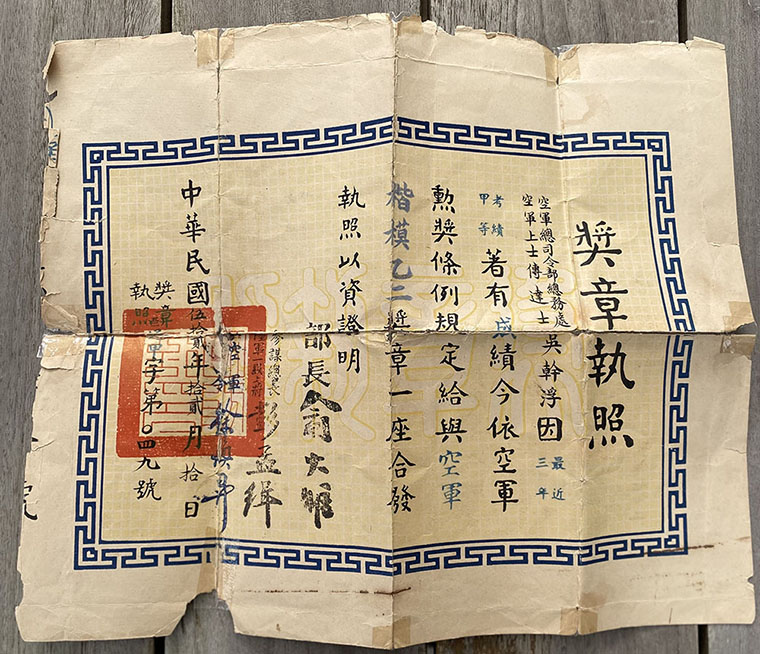 獎章執照
空軍總司令部總務處
空軍上士傳達士
吳幹浮因
最近三年
考績甲等
著有成績今依空軍
勲獎條例規定給與空軍
楷模乙二獎章一座合發
執照以資證明
部長俞大維
參謀總長
彭孟緝
中華民國伍拾貳年拾貳月拾日
獎章執照
字第〇四九號